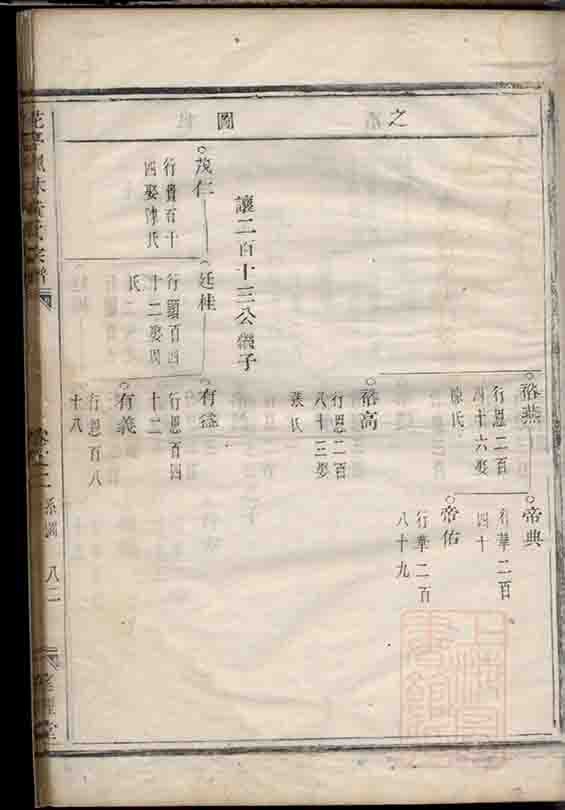 之
圖
啓燕
行恩二百
四十六娶
徐氏
帝典
行華二百
四十
帝佑
行華二百
八十九
啓高
行恩二百
八十三娶
張氏
讓二百十三公繼子
茂仁
行貴百十
四娶陳氏
廷桂
行顯百四
十二娶周
氏
有益
行恩百四
十二
有義
行恩百八
十八
系圖
八二
堂